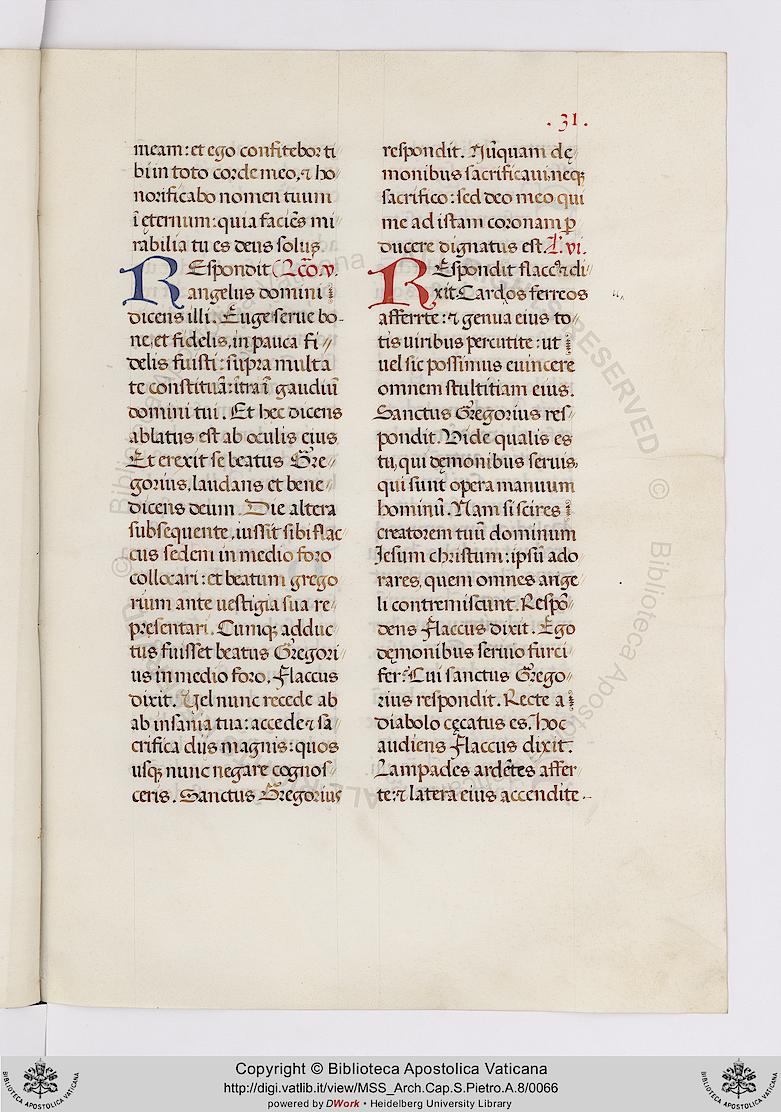 . 31 .
meam: et ego confitebor ti
bi in toto corde meo, ⁊ ho
norificabo nomen tuum
ī ęternum: quia faciēs mi
rabilia tu es deus solus.
REspondit Lcō.v.
angelus domini
dicens illi. Euge serue bo-
ne, et fidelis, in pauca fi
delis fuisti: supra multa
te constituā: ītra ī gaudiū
domini tui. Et hec dicens
ablatus est ab oculis eius
Et erexit se beatus Gre
gorius, laudans et bene
dicens deum. Die altera
subsequente, iussit sibi flac
cus sedem in medio foro
collocari: et beatum grego
rium ante uestigia sua re
presentari. Cumq; adduc
tus fuisset beatus Gregori
us in medio foro, Flaccus
dixit. Vel nunc recede ab
ab insania tua: accede ⁊ sa
crifica diis magnis: quos
usq; nunc negare cognos
ceris. Sanctus Gregorius
respondit. Nūquam dę
monibus sacrificaui, neq;
sacrifico: sed deo meo qui
me ad istam coronam ꝑ
ducere dignatus est. L. vi.
REspondit flacc⁹ ⁊ di
xit. Cardos ferreos
afferrte: ⁊ genua eius to
tis uiribus percutite: ut
uel sic possimus euincere
omnem stultitiam eius.
Sanctus Gregorius res
pondit. Vide qualis es
tu, qui dęmonibus seruis,
qui sunt opera manuum
hominū. Nam si scires
creatorem tuū dominum
Iesum christum: ipsū ado
rares, quem omnes ange
li contremiscunt. Respō
dens Flaccus dixit. Ego
dęmonibus seruio furci
fer? Cui sanctus Grego
rius respondit. Recte a
diabolo cęcatus es. Hoc
audiens Flaccus dixit.
Lampades ardētes affer
te: ⁊ latera eius accendite.
Copyright © Biblioteca Apostolica Vaticana
http://digi.vatlib.it/view/MSS_Arch.Cap.S.Pietro.A.8/0066
powered by DWork • Heidelberg University Library
BIBLIOTECA APOSTOLICA VATICANA
BIBLIOTECA APOSTOLICA VATICANA